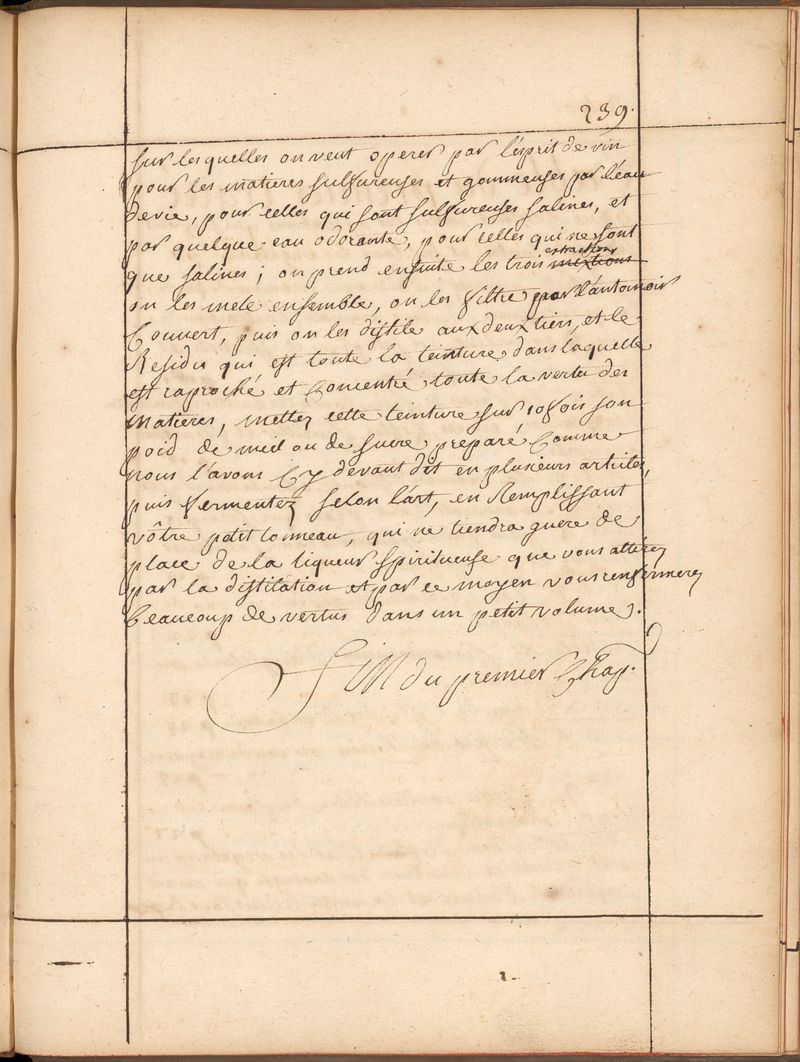 239.
sur lesquelles on veut operer par l'esprit de vin
pour les matieres sulfureuses et gommeuses par l'eau
devie, pour celles qui sont sulfureuses salines, et
par quelque eau odorante, pour celles qui ne sont
extractions
que salines; on prend ensuite les trois mixtions
on les mele ensemble, on les filtre par l'antonoir
Couvert, puis on les distile aux deux tiers, et le
Residu qui est toute la teinture dans laquelle
est raproché et Concentré toute la vertu des
Matieres, mettez cette teinture sur 10 fois son
poid de miel ou de sucre preparé Comme
nous l'avons Cy devant dit en plusieurs articles,
puis fermentez selon l'art, en Remplissant
vôtre petit tonneau, qui ne tiendra guere de
place de la liqueur spiritueuse que vous attirez
par la distilation et par ce moyen vous renfermerez
beaucoup de vertus dans un petit volume.
Fin du premier Chap.